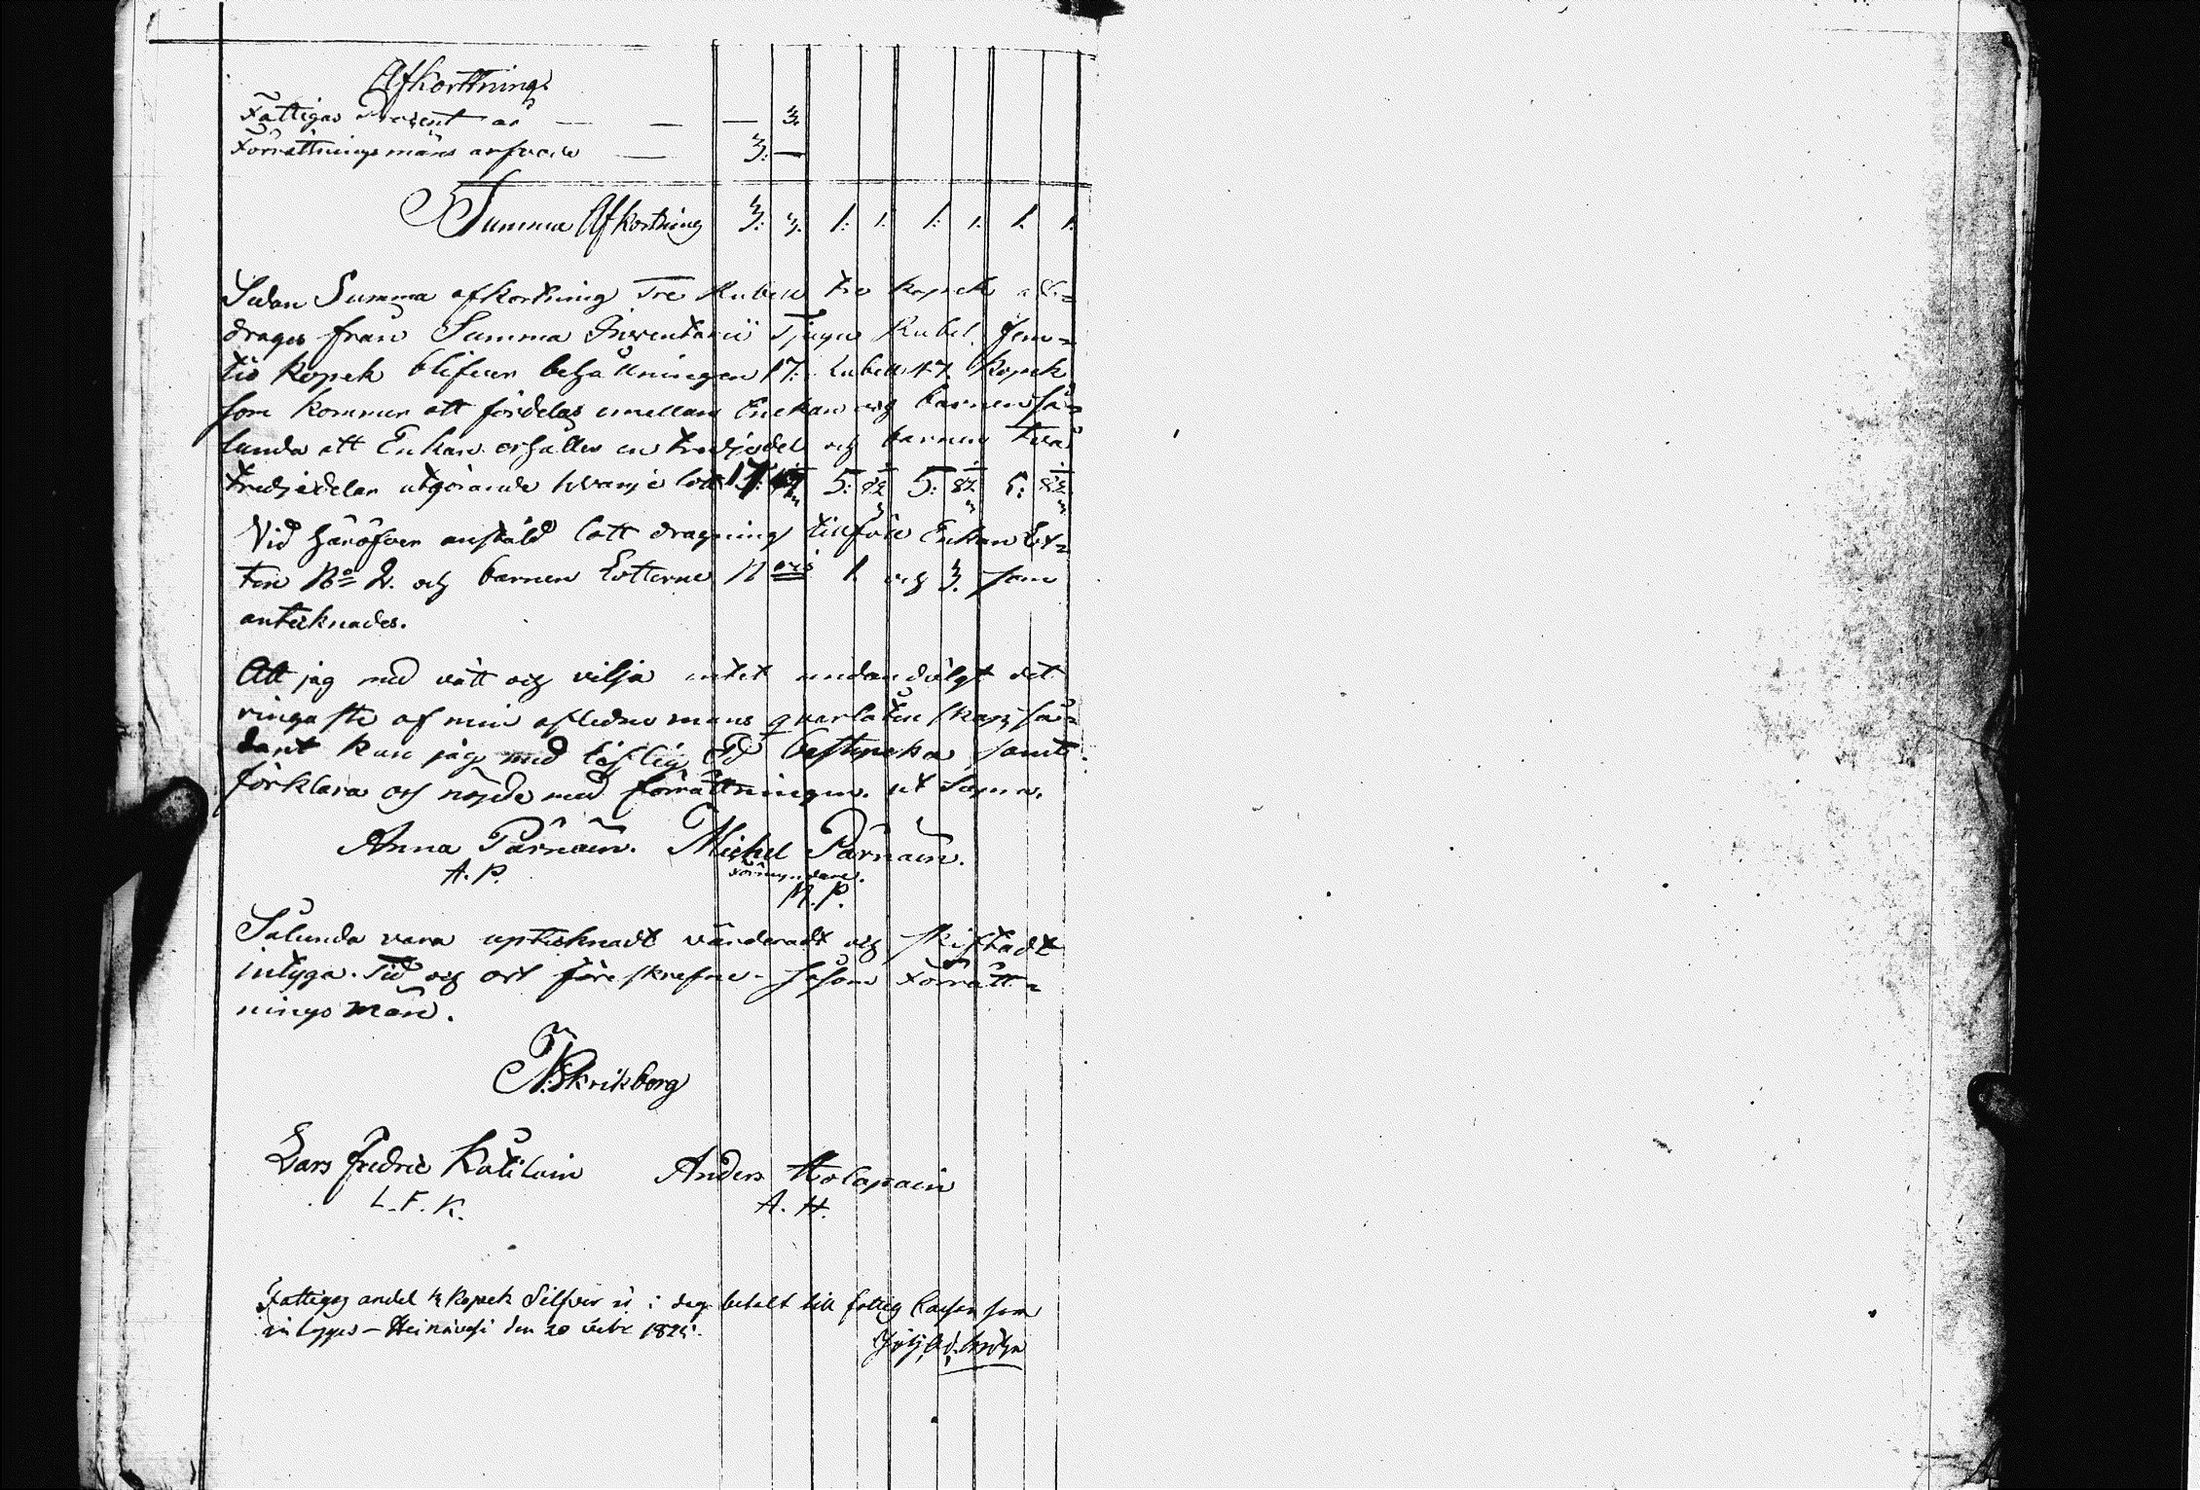 Afkortning
Fattigas Procent är — — — 3.
Förrättningsmäns arfvode — 3. —
Summa Afkortning 3. 3. 1. 1. 1. 1. 1. 1.
Sedan Summa afkortning Tre Rubel tre kopek af-
drages från Summa Inventarii Tjugu Rubel fem-
tio kopek blifver behållningen 17. Rubel 47. kopek
som kommer att fördelas emellan Enckan och barnen så-
lunda att Enkan erhåller en tredjedel och barnen två
tredjedelar utgörande hvarje lott 17. 47 5. 82 1/3 5. 82 1/3 5. 82 1/3
Vid häröfver anstäld lott dragning tillföll Enkan Lot-
ten No 2. och barnen Lotterne N ris 1. och 3. som
antecknades.
Att jag med vett och vilja intet undandölgt det
ringaste af min aflidne mans qvarlåtenskap, så-
dant kan jag med liflig Ed bestyrcka, samt
förklara oss nöjde med förrättningen. ut Supra.
Anna Pärnäin. Michel Pärnäin.
A. P. Förmyndare.
M. P.
Sålunda vara uptecknadt värderadt och skiftadt
intyga. Tid och ort föreskrefne - såsom Förrätt-
nings män.
Skrikberg
Lars Fredric Kätiläin Anders Holopain
L. F. K. A. H.
Fattigas andel 3 kopek Silfver är i dag betalt till fattig Cassan som
intygas - Heinävesi den 20